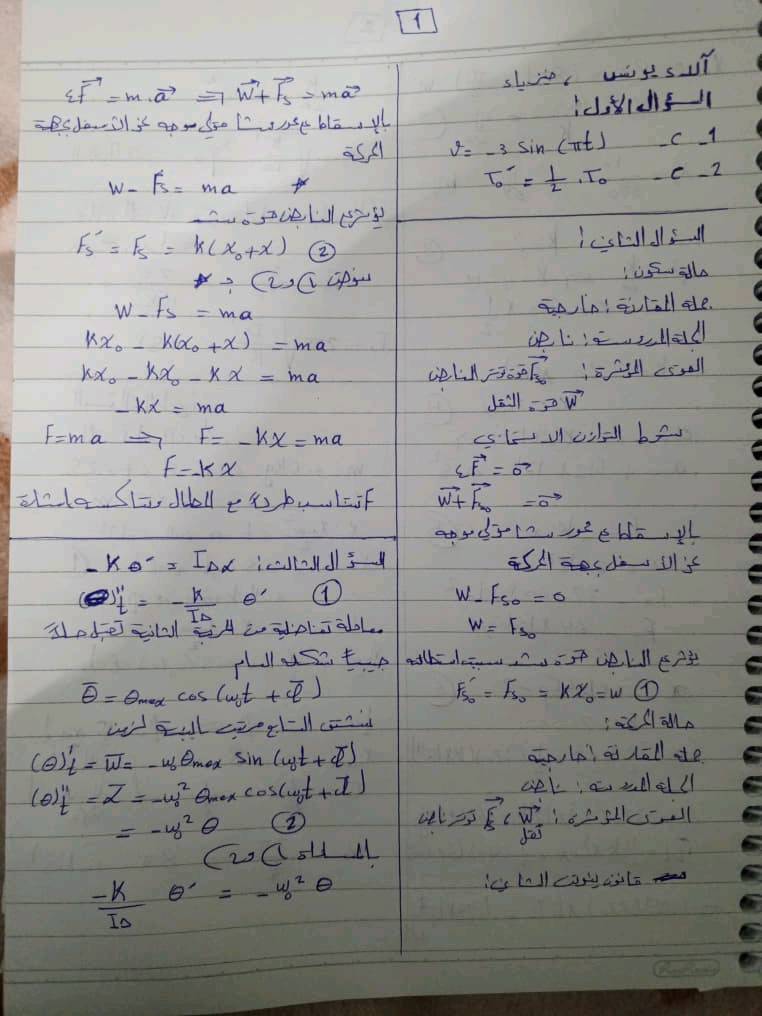 1
آلاء يونس ، فيزياء
السؤال الأول:
1 - C - v = -3 sin (πt)
2 - C - T₀′ = 1/2 . T₀
السؤال الثاني:
حالة سكون:
جملة المقارنة: خارجية
الجملة المدروسة: نابض
القوى المؤثرة: F⃗s₀ قوة توتر النابض
W⃗ قوة الثقل
شرط التوازن الانسحابي
ΣF⃗ = 0⃗
W⃗ + F⃗s₀ = 0⃗
بالإسقاط ع محور شاقولي موجه
نحو الأسفل بجهة الحركة
W - Fs₀ = 0
W = Fs₀
يؤثر ع النابض قوة شد تسبب استطالته
Fs₀′ = Fs₀ = Kx₀ = W ①
حالة الحركة:
جملة المقارنة: خارجية
الجملة المدروسة: نابض
القوى المؤثرة: W⃗ ، F⃗s توتر نابض
ثقل
قانون نيوتن الثاني:
ΣF⃗ = m.a⃗ ⇒ W⃗ + F⃗s = ma⃗
بالإسقاط ع محور شاقولي موجه نحو الأسفل بجهة
الحركة
W - Fs = ma *
يؤثر ع النابض قوة شد
Fs′ = Fs = K(x₀+x) ②
نعوض 1 و 2 بـ *
W - Fs = ma
Kx₀ - K(x₀+x) = ma
Kx₀ - Kx₀ - Kx = ma
-Kx = ma
F = ma ⇒ F = -Kx = ma
F = -Kx
F تتناسب طرداً مع المطال وتعاكسه بالإشارة
السؤال الثالث: -Kθ′ = IΔα
(θ)″t = -K/IΔ θ′ ①
معادلة تفاضلية من المرتبة الثانية تقبل حلاً
جيبياً شكله العام
θ̄ = θmax cos (ω₀t + φ̄)
نشتق التابع مرتين بالنسبة للزمن
(θ)′t = ω̄ = -ω₀θmax sin (ω₀t + φ̄)
(θ)″t = α̅ = -ω₀² θmax cos(ω₀t + φ̄)
= -ω₀² θ ②
بالمساواة 1 و 2
-K/IΔ θ′ = -ω₀² θ